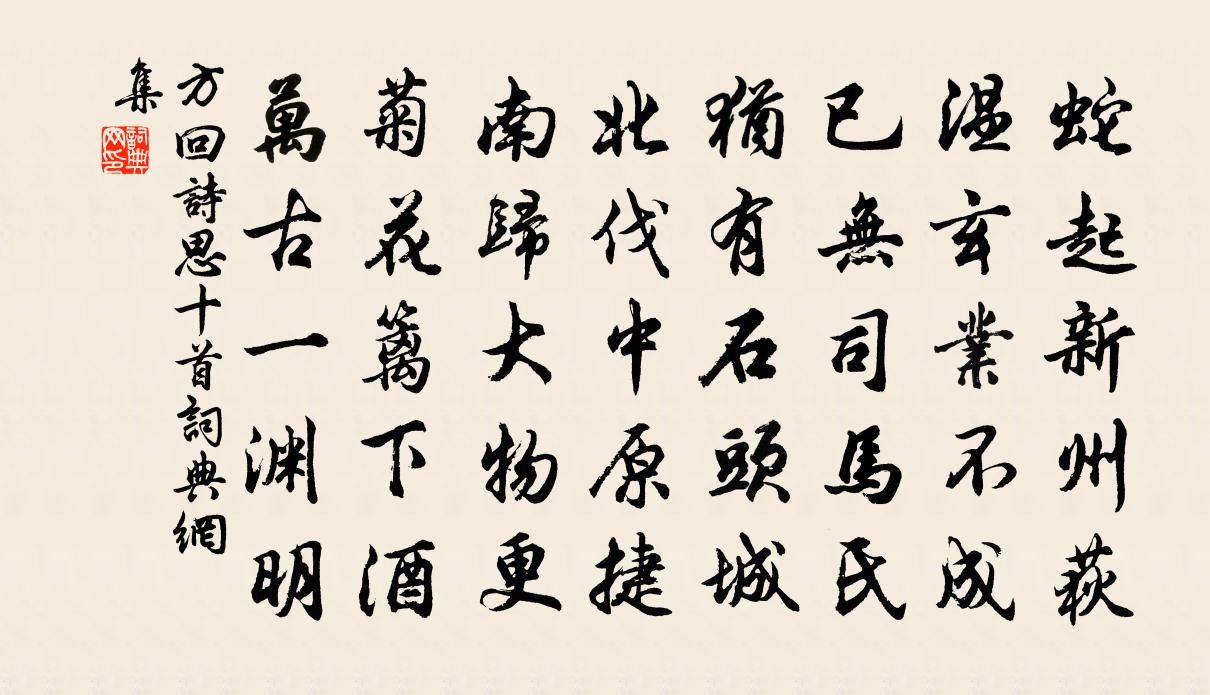 蛇起新州荻
温玄業不成
已無司馬氏
猶有石頭城
北伐中原捷
南歸大物更
菊花籬下酒
萬古一渊明
方回詩思十首詞典網
集
詞典网印